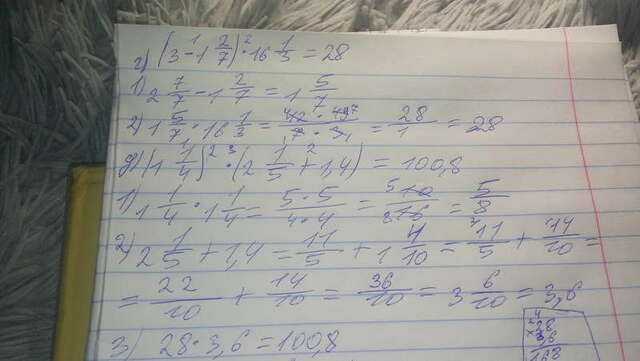 г) (3 - 1 2/7) · 16 1/3 = 28
1) 2 7/7 - 1 2/7 = 1 5/7
2) 1 5/7 · 16 1/3 = 12 · 49 / 7 · 3 = 28/1 = 28
(1 1/4)² · (2 1/5 + 1,4) = 100,8
1) 1 1/4 · 1 1/4 = 5 · 5 / 4 · 4 = = 5/8
2) 2 1/5 + 1,4 = 11/5 + 1 4/10 = 11/5 + 14/10 =
= 22/10 + 14/10 = 36/10 = 3 6/10 = 3,6
3) 28 · 3,6 = 100,8
28
× 3,6
168